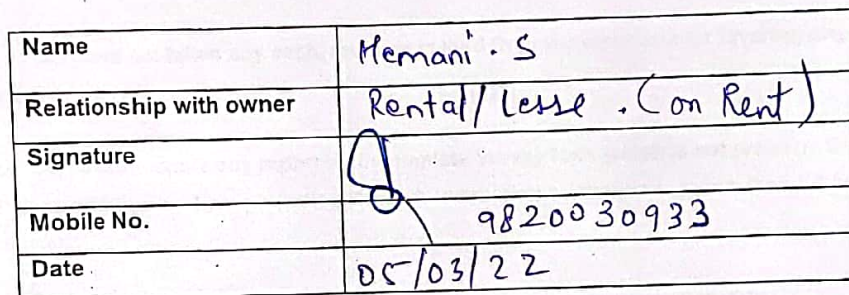 Name Hemani. S
Relationship with owner Rental/Lesse. (on Rent)
Signature
Mobile No. 9820030933
Date 05/03/22